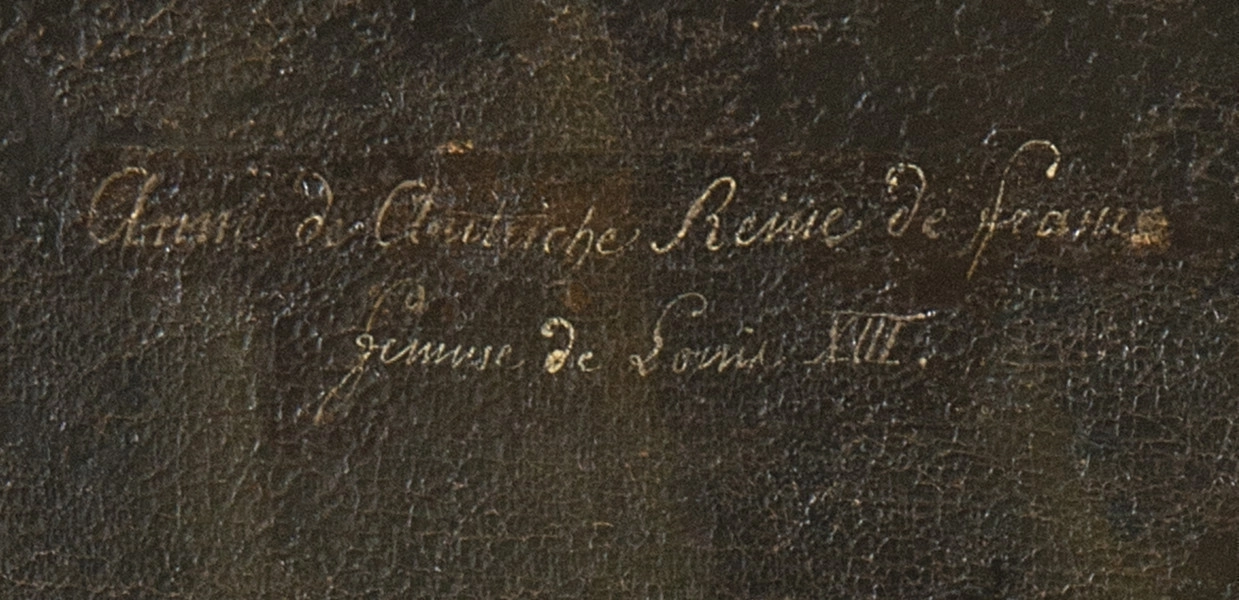 Anne de Autriche Reine de france
femme de Louis XIII.